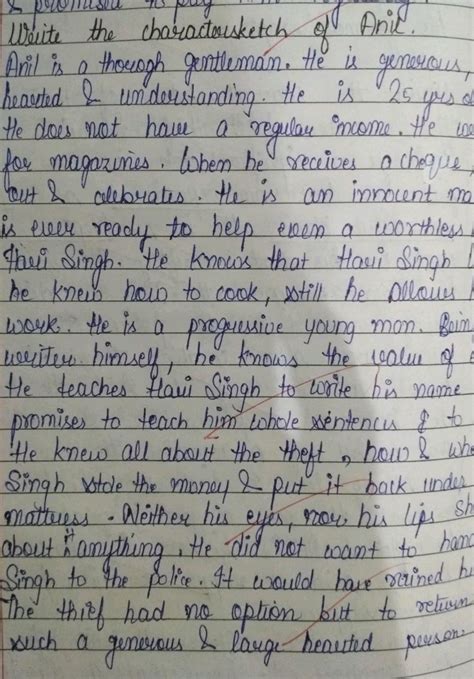 & promised to pay
Write the charactersketch of Anil.
Anil is a thorogh gentleman. He is generous,
hearted & understanding. He is 25 yrs o
He does not have a regular income. He w
for magazines. When he receives a cheque,
out & celebrates. He is an innocent ma
is ever ready to help even a worthless
Hari Singh. He knows that Hari Singh l
he knew how to cook, still he allows h
work. He is a progressive young man. Bein
writter himself, he knows the value of
He teaches Hari Singh to write his name
promises to teach him whole sentences & to
He knew all about the theft, how & whe
Singh stole the money & put it back under
mattress. Neither his eyes, nor his lips sh
about it anything. He did not want to hand
Singh to the police. It would have ruined hi
The thief had no option but to return
such a generous & large hearted person.